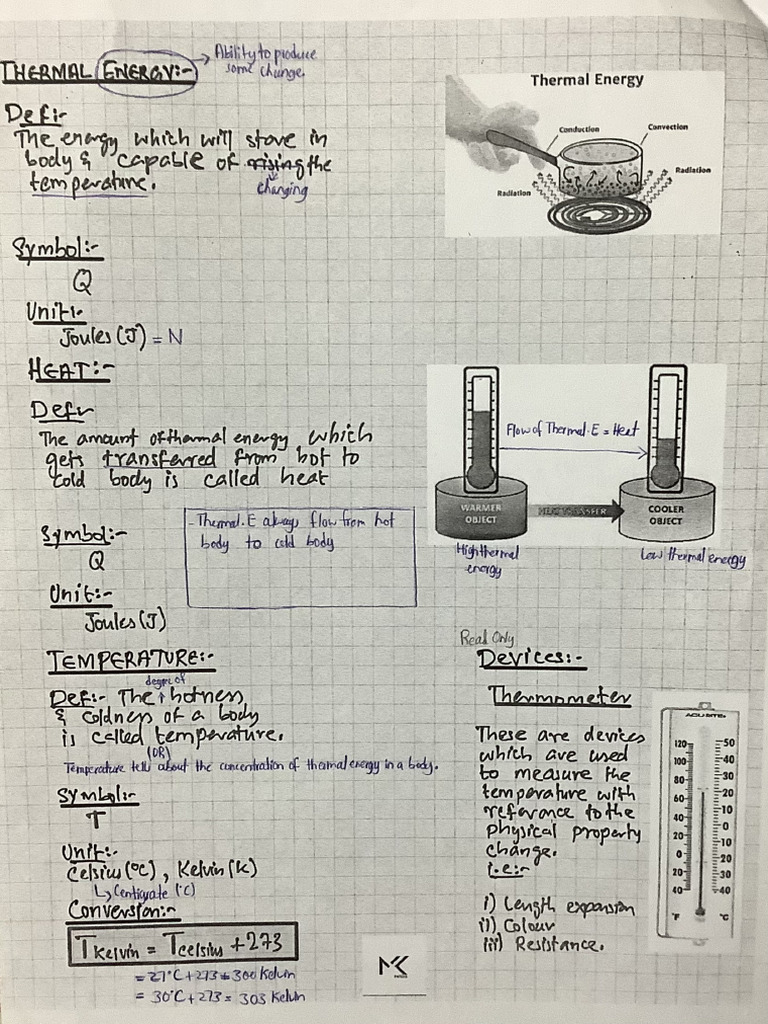 THERMAL ENERGY:-
Ability to produce
some change.
Def:-
The energy which will store in
body & capable of rising the
changing
temperature.
Thermal Energy
Conduction
Convection
Radiation
Radiation
Symbol:-
Q
Unit:-
Joules (J) = N
HEAT:-
Def:-
The amount of thermal energy which
gets transferred from hot to
cold body is called heat
Flow of Thermal.E = Heat
WARMER
OBJECT
HEAT TRANSFER
COOLER
OBJECT
High thermal
energy
Low thermal energy
Symbol:-
Q
- Thermal.E always flow from hot
body to cold body
Unit:-
Joules (J)
TEMPERATURE:-
degree of
Def:- The hotness
& coldness of a body
is called temperature.
(OR)
Temperature tells about the concentration of thermal energy in a body.
Symbol:-
T
Unit:-
Celsius (°C), Kelvin (k)
Centigrate (°C)
Conversion:-
T Kelvin = T Celsius + 273
= 27°C + 273 = 300 Kelvin
= 30°C + 273 = 303 Kelvin
Read Only
Devices:-
Thermometer
These are devices
which are used
to measure the
temperature with
reference to the
physical property
change.
i.e:-
i) Length expansion
ii) Colour
iii) Resistance.
ACU-RITE
120 50
100 40
80 30
60 20
40 10
20 0
0 10
20 20
40 30
40
°F °C
MK